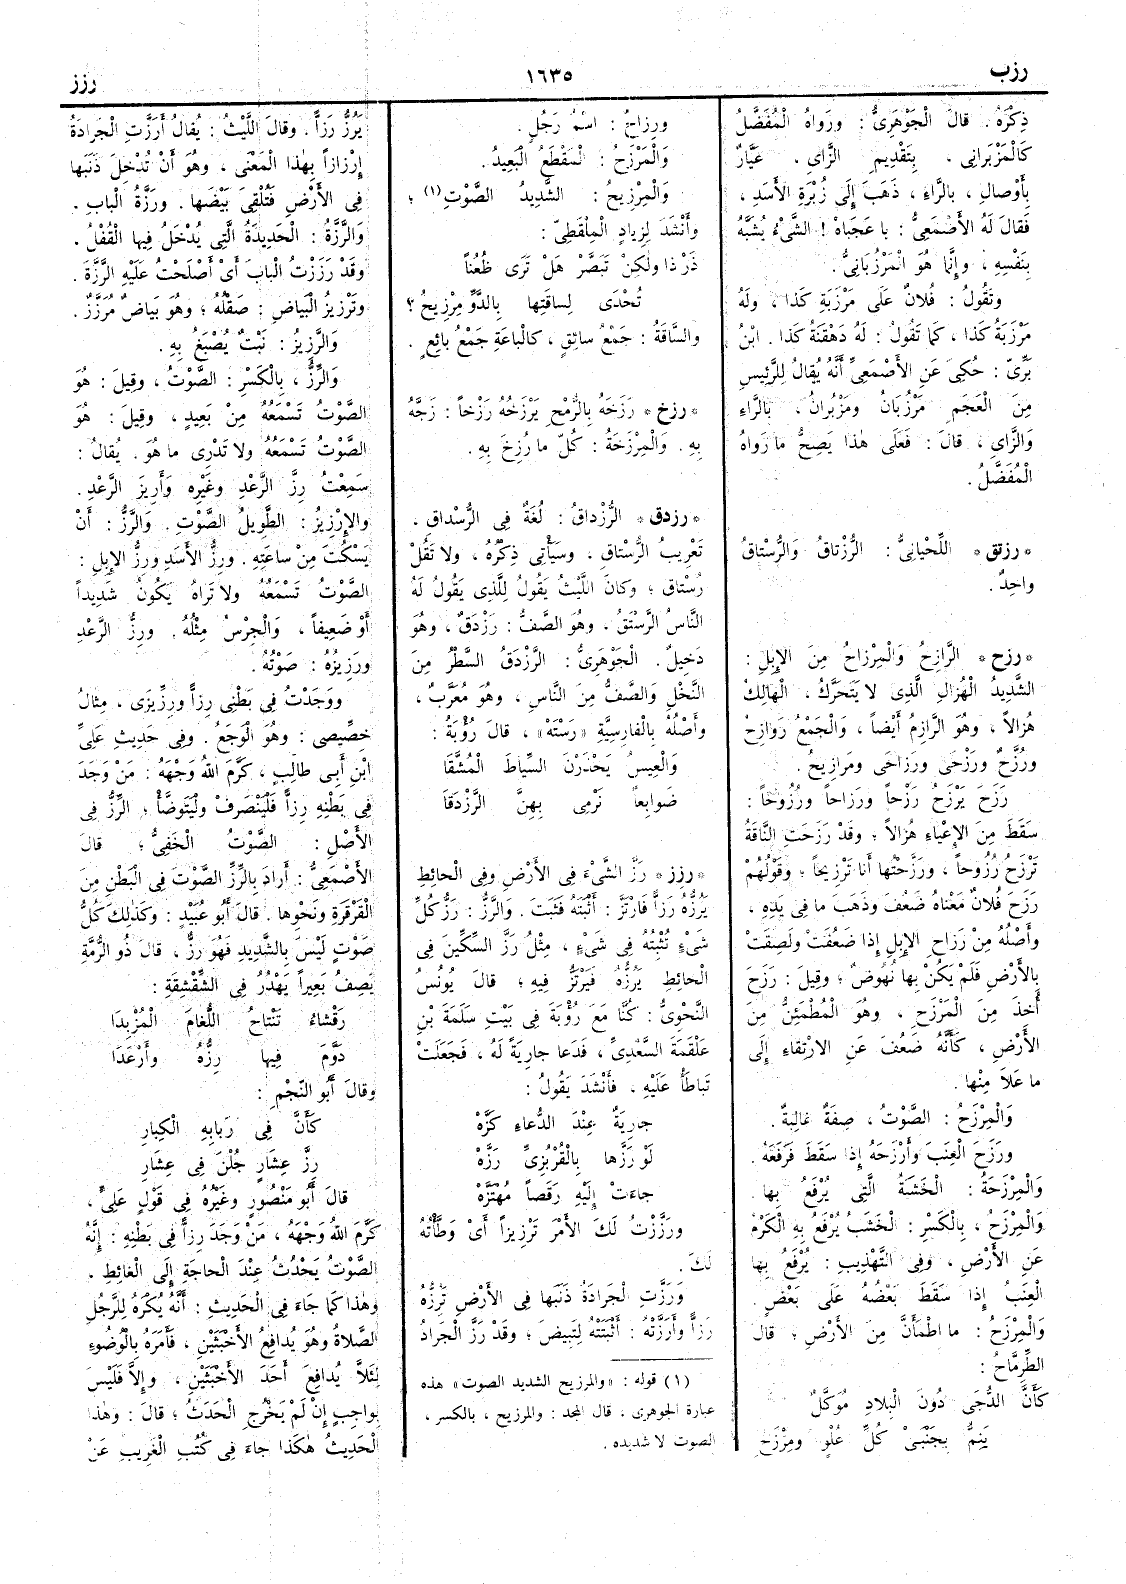 رزب
١٦٣٥
رزز
ذِكْرَهُ . قالَ الْجَوْهَرِىُّ : وَرَواهُ الْمُفَضَّلُ
كَالْمَزْبَرانِى ، بِتَقْدِيمِ الزَّاىِ ، عَيَّارٌ
بِأَوْصالٍ ، بِالرَّاءِ ، ذَهَبَ إِلَى زُبْرَةِ الأَسَدِ ،
فَقالَ لَهُ الأَصْمَعِىُّ : يا عَجَباهُ ! الشَّىْءُ يُشَبَّهُ
بِنَفْسِهِ ، وإِنَّما هُوَ الْمَرْزُبانِىُّ .
وَتَقُولُ : فُلانٌ عَلَى مَرْزَبَةِ كَذا ، ولَهُ
مَرْزَبَةُ كَذا ، كَما تَقُولُ : لَهُ دَهْقَنَةُ كَذا . ابْنُ
بَرِّىّ : حُكِىَ عَنِ الأَصْمَعِىِّ أَنَّهُ يُقالُ لِلرَّئِيسِ
مِنَ الْعَجَمِ مَرْزُبانٌ ومَزْبُرانٌ ، بِالرَّاءِ
وَالزَّاىِ ، قالَ : فَعَلَى هٰذا يَصِحُّ ما رَواهُ
الْمُفَضَّلُ .
* رزتق * اللِّحْيانِىُّ : الرُّزْتاقُ وَالرُّسْتاقُ
واحِدٌ .
* رزح * الرَّازِحُ وَالْمِرْزاحُ مِنَ الإِبِلِ :
الشَّدِيدُ الْهُزالِ الَّذِى لا يَتَحَرَّكُ ، الْهالِكُ
هُزالاً ، وهُوَ الرَّازِمُ أَيْضاً ، وَالْجَمْعُ رَوازِحُ
ورُزَّحٌ ورَزْحَى ورَزاحَى ومَرازِيحُ .
رَزَحَ يَرْزَحُ رَزْحاً ورَزاحاً ورُزُوحاً :
سَقَطَ مِنَ الإِعْياءِ هُزالاً ؛ وقَدْ رَزَحَتِ النَّاقَةُ
تَرْزَحُ رُزُوحاً ، ورَزَّحْتُها أَنا تَرْزِيحاً ؛ وقَوْلُهُمْ
رَزَحَ فُلانٌ مَعْناهُ ضَعُفَ وَذَهَبَ ما فِى يَدِهِ ،
وأَصْلُهُ مِنْ رَزاحِ الإِبِلِ إِذا ضَعُفَتْ ولَصِقَتْ
بِالأَرْضِ فَلَمْ يَكُنْ بِها نُهُوضٌ ؛ وقِيلَ : رَزَحَ
أُخِذَ مِنَ الْمَرْزَحِ ، وهُوَ الْمُطْمَئِنُّ مِنَ
الأَرْضِ ، كَأَنَّهُ ضَعُفَ عَنِ الارْتِقاءِ إِلَى
ما عَلاَ مِنْها .
وَالْمِرْزَحُ : الصَّوْتُ ، صِفَةٌ غالِبَةٌ .
ورَزَحَ الْعِنَبَ وأَرْزَحَهُ إِذا سَقَطَ فَرَفَعَهُ .
وَالْمِرْزَحَةُ : الْخَشَبَةُ الَّتِى يُرْفَعُ بِها .
وَالْمِرْزَحُ ، بِالْكَسْرِ : الْخَشَبُ يُرْفَعُ بِهِ الْكَرْمُ
عَنِ الأَرْضِ ، وفِى التَّهْذِيبِ : يُرْفَعُ بِها
الْعِنَبُ إِذا سَقَطَ بَعْضُهُ عَلَى بَعْضٍ .
وَالْمِرْزَحُ : ما اطْمَأَنَّ مِنَ الأَرْضِ ؛ قالَ
الطِّرِمَّاحُ :
كَأَنَّ الدُّجَى دُونَ الْبِلادِ مُوَكَّلٌ
يَنِمُّ بِجَنْبَىْ كُلِّ عُلْوٍ ومِرْزَحِ
ورِزاحُ : اسْمُ رَجُلٍ .
وَالْمَرْزَحُ : الْمَقْطَعُ الْبَعِيدُ .
وَالْمِرْزِيحُ : الشَّدِيدُ الصَّوْتِ (١) ؛
وأَنْشَدَ لِزِيادٍ الْمِلْقَطِىِّ :
ذَرْ ذا ولٰكِنْ تَبَصَّرْ هَلْ تَرَى ظُعُناً
تُحْدَى لِساقَتِها بِالدَّوِّ مِرْزِيحُ ؟
والسَّاقَةُ : جَمْعُ سائِقٍ ، كَالْباعَةِ جَمْعُ بائِعٍ .
* رزخ * رَزَخَهُ بِالرُّمْحِ يَرْزَخُهُ رَزْخاً : زَجَّهُ
بِهِ . وَالْمِرْزَخَةُ : كُلُّ ما رُزِخَ بِهِ .
* رزدق * الرُّزْداقُ : لُغَةٌ فِى الرُّسْداقِ ،
تَعْرِيبُ الرُّسْتاقِ ، وسَيَأْتِى ذِكْرُهُ ، ولا تَقُلْ
رُسْتاق ؛ وكانَ اللَّيْثُ يَقُولُ لِلَّذِى يَقُولُ لَهُ
النَّاسُ الرَّسْتَقُ ، وهُوَ الصَّفُّ : رَزْدَقٌ ، وهُوَ
دَخِيلٌ . الْجَوْهَرِىُّ : الرَّزْدَقُ السَّطْرُ مِنَ
النَّخْلِ وَالصَّفُّ مِنَ النَّاسِ ، وهُوَ مُعَرَّبٌ ،
وأَصْلُهُ بِالْفارِسِيَّةِ «رَسْتَه» ، قالَ رُؤْبَةُ :
وَالْعِيسُ يَحْذَرْنَ السِّياطَ الْمُشَّقَا
ضَوابِعاً نَرْمِى بِهِنَّ الرَّزْدَقَا
* رزز * رَزَّ الشَّىْءَ فِى الأَرْضِ وفِى الْحائِطِ
يَرُزُّهُ رَزّاً فَارْتَزَّ : أَثْبَتَهُ فَثَبَتَ . والرَّزُّ : رَزُّ كُلِّ
شَىْءٍ تُثْبِتُهُ فِى شَىْءٍ ، مِثْلُ رَزَّ السِّكِّينَ فِى
الْحائِطِ يَرُزُّهُ فَيَرْتَزُّ فِيهِ ؛ قالَ يُونُسُ
النَّحْوِىُّ : كُنَّا مَعَ رُؤْبَةَ فِى بَيْتِ سَلَمَةَ بْنِ
عَلْقَمَةَ السَّعْدِىِّ ، فَدَعا جارِيَةً لَهُ ، فَجَعَلَتْ
تَباطَأُ عَلَيْهِ ، فَأَنْشَدَ يَقُولُ :
جارِيَةٌ عِنْدَ الدُّعاءِ كَزَّهْ
لَوْ رَزَّها بِالْقُرْبُزِىِّ رَزَّهْ
جاءَتْ إِلَيْهِ رَقَصاً مُهْتَزَّهْ
ورَزَّزْتُ لَكَ الأَمْرَ تَرْزِيزاً أَىْ وَطَّأْتُهُ
لَكَ .
ورَزَّتِ الْجَرادَةُ ذَنَبَها فِى الأَرْضِ تَرُزُّهُ
رَزّاً وأَرَزَّتْهُ : أَثْبَتَتْهُ لِتَبِيضَ ؛ وقَدْ رَزَّ الْجَرادُ
(١) قوله : «والمرزيح الشديد الصوت» هذه
عبارة الجوهرى ، قال المجد : والمرزيح ، بالكسر ،
الصوت لا شديده .
يَرُزُّ رَزّاً . وقالَ اللَّيْثُ : يُقالُ أَرَزَّتِ الْجَرادَةُ
إِرْزازاً بِهٰذا الْمَعْنَى ، وهُوَ أَنْ تُدْخِلَ ذَنَبَها
فِى الأَرْضِ فَتُلْقِىَ بَيْضَها . ورَزَّةُ الْبابِ .
وَالرَّزَّةُ : الْحَدِيدَةُ الَّتِى يُدْخَلُ فِيها الْقُفْلُ .
وقَدْ رَزَزْتُ الْبابَ أَىْ أَصْلَحْتُ عَلَيْهِ الرَّزَّةَ .
وتَرْزِيزُ الْبَياضِ : صَقْلُهُ ؛ وهُوَ بَياضٌ مُرَزَّزٌ .
وَالرَّزِيزُ : نَبْتٌ يُصْبَغُ بِهِ .
وَالرِّزُّ ، بِالْكَسْرِ : الصَّوْتُ ، وقِيلَ : هُوَ
الصَّوْتُ تَسْمَعُهُ مِنْ بَعِيدٍ ، وقِيلَ : هُوَ
الصَّوْتُ تَسْمَعُهُ ولا تَدْرِى ما هُوَ . يُقالُ :
سَمِعْتُ رِزَّ الرَّعْدِ وغَيْرِهِ وَأَرِيزَ الرَّعْدِ .
والإِرْزِيزُ : الطَّوِيلُ الصَّوْتِ . وَالرِّزُّ : أَنْ
يَسْكُتَ مِنْ ساعَتِهِ . ورِزُّ الأَسَدِ ورِزُّ الإِبِلِ :
الصَّوْتُ تَسْمَعُهُ ولا تَراهُ يَكُونُ شَدِيداً
أَوْ ضَعِيفاً ، وَالْجِرْسُ مِثْلُهُ . ورِزُّ الرَّعْدِ
ورَزِيزُهُ : صَوْتُهُ .
ووَجَدْتُ فِى بَطْنِى رِزّاً ورِزِّيزَى ، مِثالُ
خِصِّيصَى : وهُوَ الْوَجَعُ . وفِى حَدِيثِ عَلِىِّ
ابْنِ أَبِى طالِبٍ ، كَرَّمَ اللهُ وَجْهَهُ : مَنْ وَجَدَ
فِى بَطْنِهِ رِزّاً فَلْيَنْصَرِفْ ولْيَتَوَضَّأْ ؛ الرِّزُّ فِى
الأَصْلِ : الصَّوْتُ الْخَفِىُّ ؛ قالَ
الأَصْمَعِىُّ : أَرادَ بِالرِّزِّ الصَّوْتَ فِى الْبَطْنِ مِنَ
الْقَرْقَرَةِ ونَحْوِها . قالَ أَبُو عُبَيْدٍ : وكَذٰلِكَ كُلُّ
صَوْتٍ لَيْسَ بِالشَّدِيدِ فَهُوَ رِزٌّ ، قالَ ذُو الرُّمَّةِ
يَصِفُ بَعِيراً يَهْدُرُ فِى الشِّقْشِقَةِ :
رَقْشاءُ تَنْتاحُ اللُّغامَ الْمُزْبِدَا
دَوَّمَ فِيها رِزُّهُ وأَرْعَدَا
وقالَ أَبُو النَّجْمِ :
كَأَنَّ فِى رَبابِهِ الْكِبارِ
رِزَّ عِشارٍ جُلْنَ فِى عِشارِ
قالَ أَبُو مَنْصُورٍ وغَيْرُهُ فِى قَوْلِ عَلِىٍّ ،
كَرَّمَ اللهُ وَجْهَهُ ، مَنْ وَجَدَ رِزّاً فِى بَطْنِهِ : إِنَّهُ
الصَّوْتُ يَحْدُثُ عِنْدَ الْحاجَةِ إِلَى الْغائِطِ .
وهٰذا كَما جاءَ فِى الْحَدِيثِ : أَنَّهُ يُكْرَهُ لِلرَّجُلِ
الصَّلاةُ وهُوَ يُدافِعُ الأَخْبَثَيْنِ ، فَأَمَرَهُ بِالْوُضُوءِ
لِئَلاَّ يُدافِعَ أَحَدَ الأَخْبَثَيْنِ ، وإِلاَّ فَلَيْسَ
بِواجِبٍ إِنْ لَمْ يَخْرُجِ الْحَدَثُ ؛ قالَ : وهٰذا
الْحَدِيثُ هٰكَذا جاءَ فِى كُتُبِ الْغَرِيبِ عَنْ